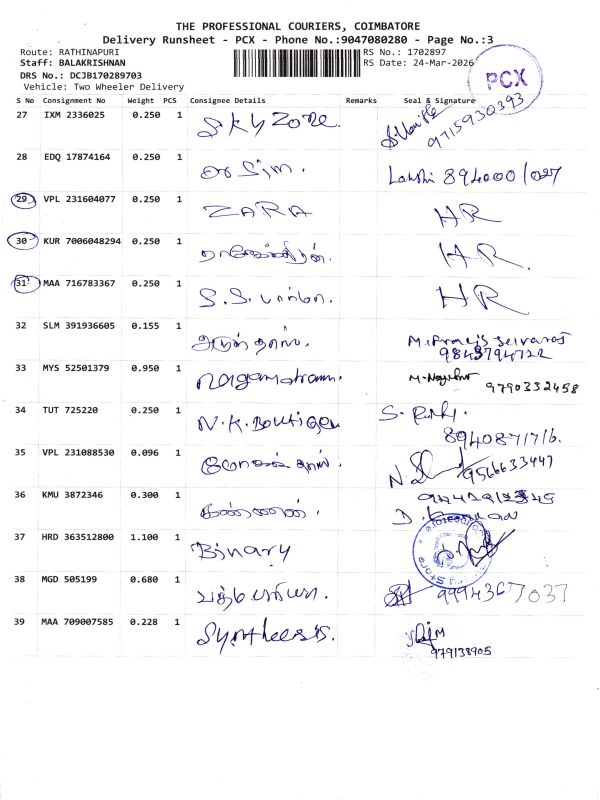 THE PROFESSIONAL COURIERS, COIMBATORE
Delivery Runsheet - PCX - Phone No.:9047080280 - Page No.:3
Route: RATHINAPURI RS No.: 1702897
Staff: BALAKRISHNAN RS Date: 24-Mar-2026
DRS No.: DCJB170289703
Vehicle: Two Wheeler Delivery
PCX
S No Consignment No Weight PCS Consignee Details Remarks Seal & Signature
27 IXM 2336025 0.250 1 Sky Zone. 9715930393
28 EDQ 17874164 0.250 1 Lakshi
29 VPL 231604077 0.250 1 ZARA HR
30 KUR 7006048294 0.250 1 HR.
31 MAA 716783367 0.250 1 S.S. HR
32 SLM 391936605 0.155 1 அருள் தாஸ்.
9843794722
33 MYS 52501379 0.950 1 9790332458
34 TUT 725220 0.250 1 N.K. Boutique
8940871716.
35 VPL 231088530 0.096 1 9566633447
36 KMU 3872346 0.300 1 கண்ணன்.
37 HRD 363512800 1.100 1 Binary
38 MGD 505199 0.680 1 9994367037
39 MAA 709007585 0.228 1 Synthesis.
979138905